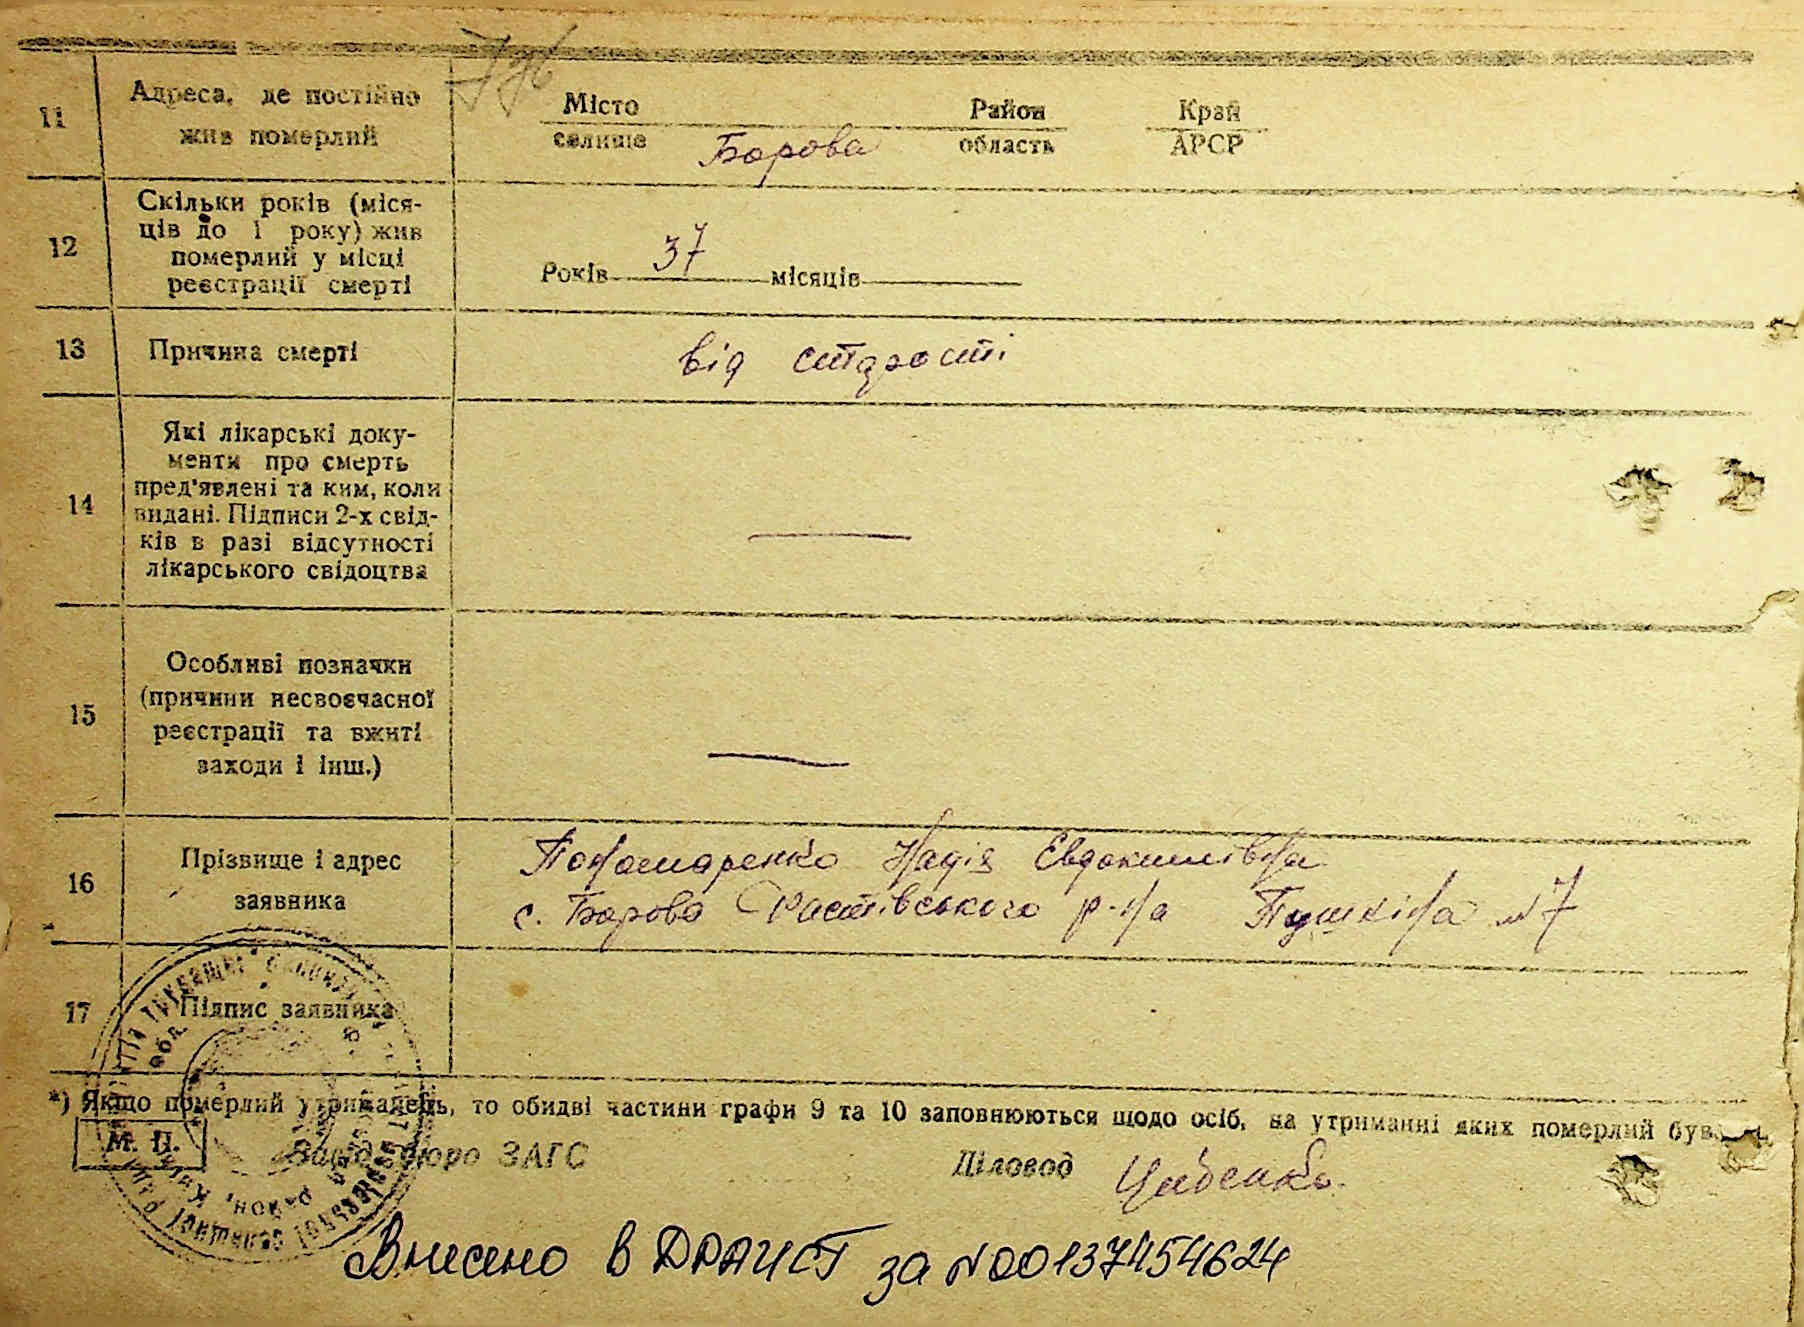 776
11 Адреса, де постійно
жив померлий
Місто Район Край
селище Борова область АРСР
12 Скільки років (міся-
ців до 1 року) жив
померлий у місці
реєстрації смерті
Років 37 місяців
13 Причина смерті від старості
14 Які лікарські доку-
менти про смерть
пред'явлені та ким, коли
видані. Підписи 2-х свід-
ків в разі відсутності
лікарського свідоцтва
—
15 Особливі позначки
(причини несвоєчасної
реєстрації та вжиті
заходи і інш.)
—
16 Прізвище і адрес
заявника
Пономаренко Надія Евдокимівна
с. Борова Фастівського р-на Пушкіна №7
17 Підпис заявника
*) Якщо померлий утриманець, то обидві частини графи 9 та 10 заповнюються щодо осіб, на утриманні яких померлий був.
М. П. Завід. бюро ЗАГС Діловод
Внесено в ДРАЦСГ за №00137454624